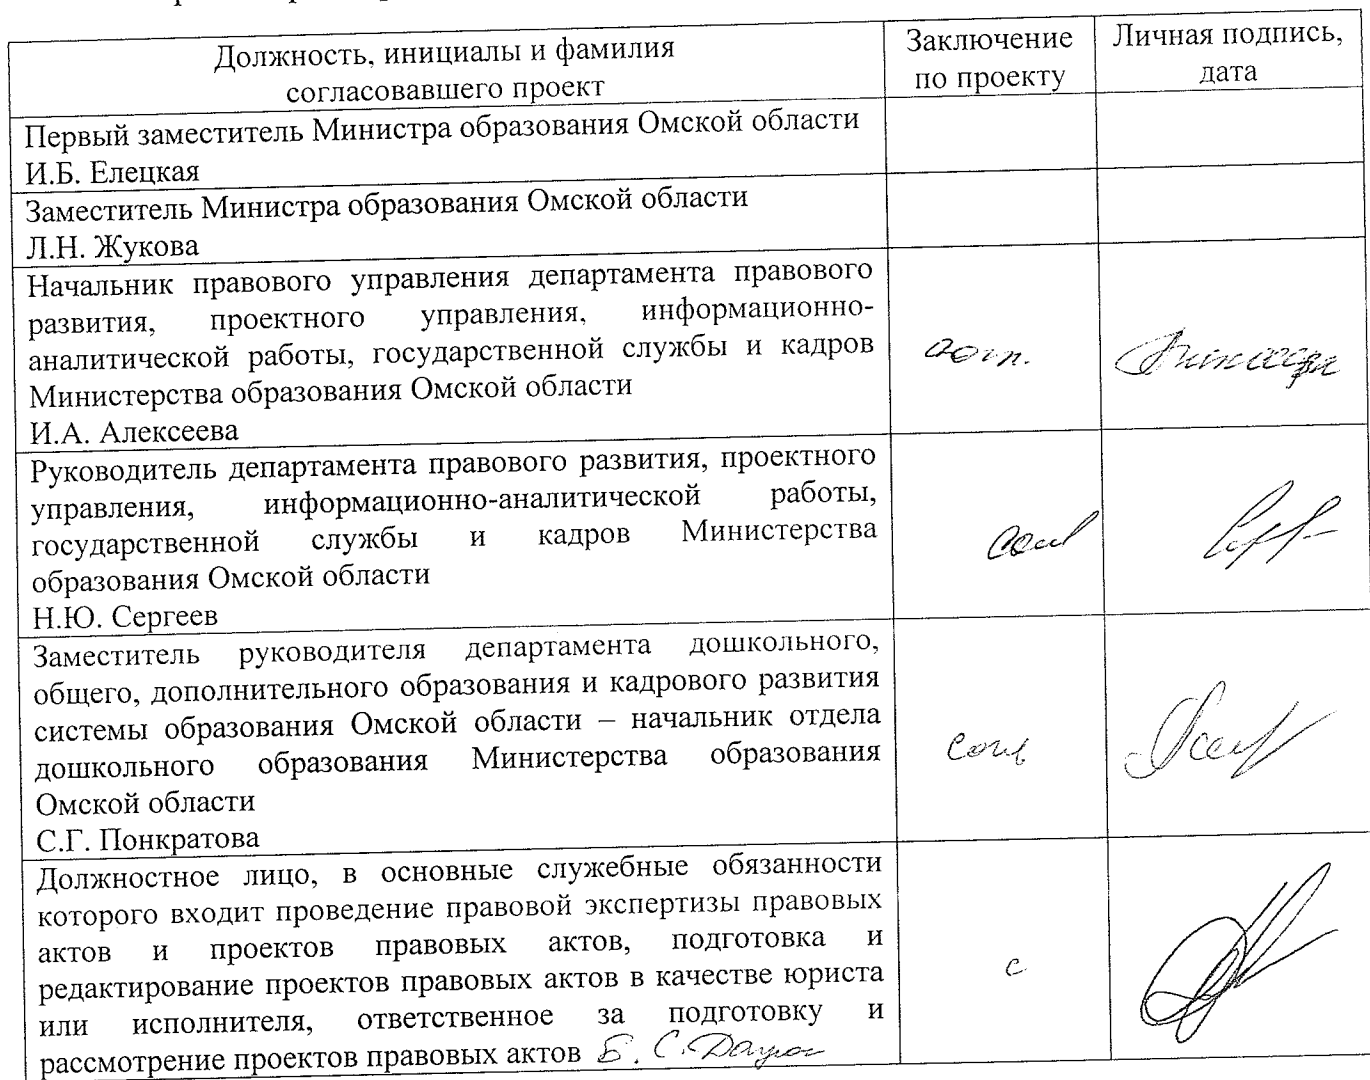 Должность, инициалы и фамилия
согласовавшего проект
Заключение
по проекту
Личная подпись,
дата
Первый заместитель Министра образования Омской области
И.Б. Елецкая
Заместитель Министра образования Омской области
Л.Н. Жукова
Начальник правового управления департамента правового
развития, проектного управления, информационно-
аналитической работы, государственной службы и кадров
Министерства образования Омской области
И.А. Алексеева
Руководитель департамента правового развития, проектного
управления, информационно-аналитической работы,
государственной службы и кадров Министерства
образования Омской области
Н.Ю. Сергеев
Заместитель руководителя департамента дошкольного,
общего, дополнительного образования и кадрового развития
системы образования Омской области – начальник отдела
дошкольного образования Министерства образования
Омской области
С.Г. Понкратова
Должностное лицо, в основные служебные обязанности
которого входит проведение правовой экспертизы правовых
актов и проектов правовых актов, подготовка и
редактирование проектов правовых актов в качестве юриста
или исполнителя, ответственное за подготовку и
рассмотрение проектов правовых актов Б.С.
с